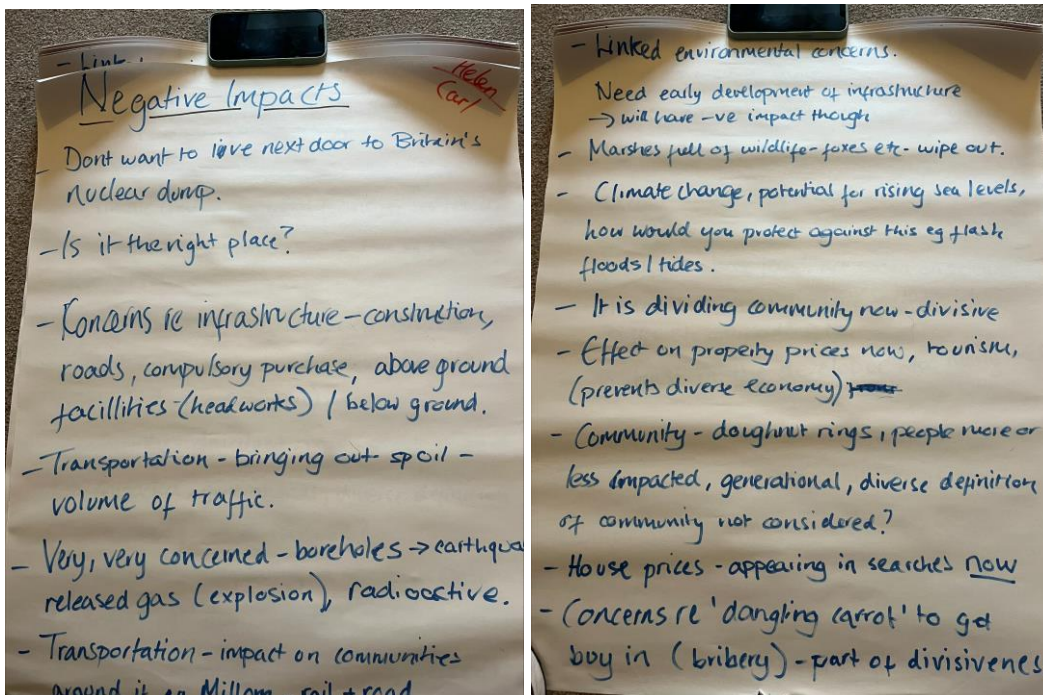 - Link
Negative Impacts
Helen
Carl
- Dont want to live next door to Britain's
nuclear dump.
- Is it the right place?
- Concerns re infrastructure - construction,
roads, compulsory purchase, above ground
facillities (headworks) / below ground.
- Transportation - bringing out spoil -
volume of traffic.
- Very, very concerned - boreholes → earthqua
released gas (explosion), radioactive.
- Transportation - impact on communities
around it eg Millom, rail + road
- Linked environmental concerns.
Need early development of infrastructure
→ will have -ve impact though
- Marshes full of wildlife - foxes etc - wipe out.
- Climate change, potential for rising sea levels,
how would you protect against this eg flash
floods / tides.
- It is dividing community now - divisive
- Effect on property prices now, tourism,
(prevents diverse economy)
- Community - doughnut rings, people more or
less impacted, generational, diverse definition
of community not considered?
- House prices - appearing in searches now
- Concerns re 'dangling carrot' to get
buy in (bribery) - part of divisivenes